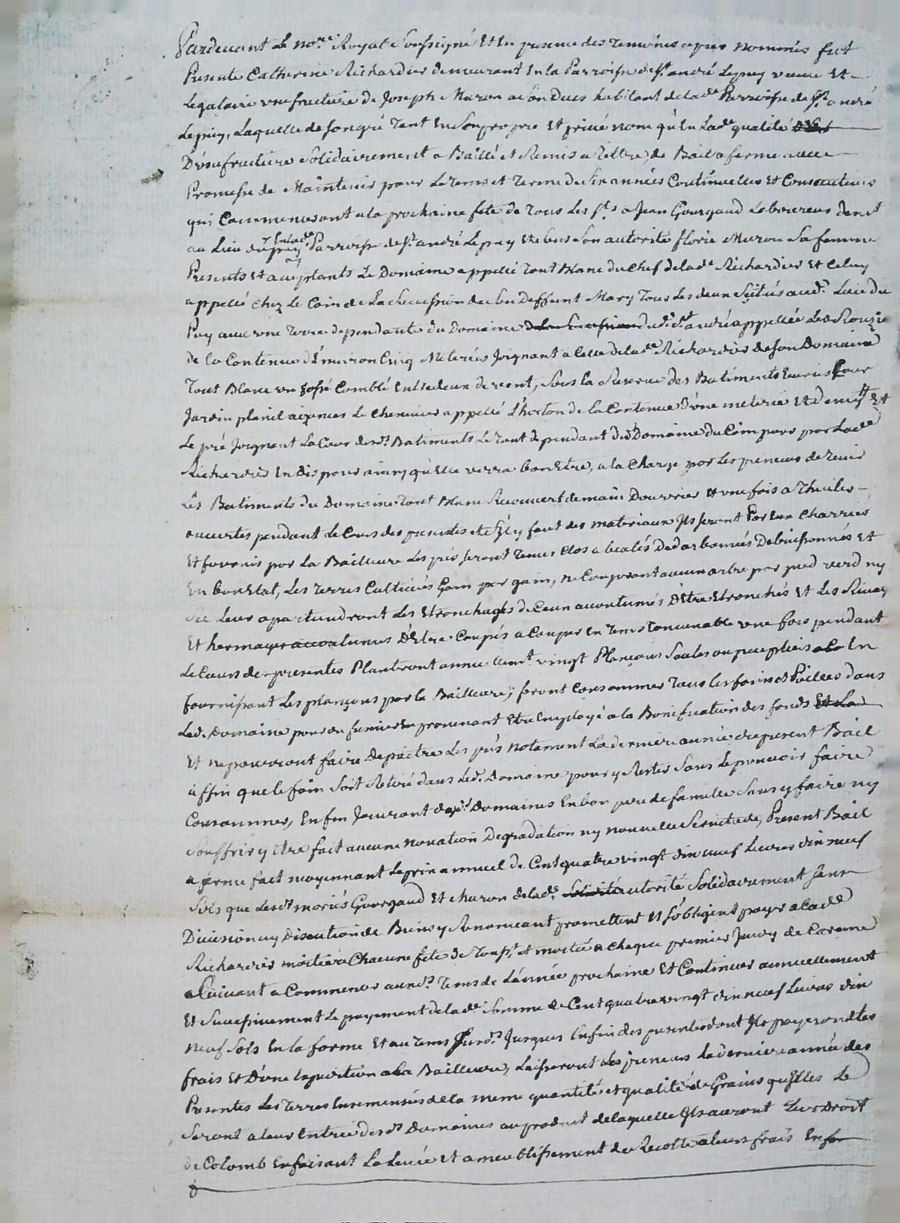 Pardevant Le no.re Royal Soussigné Et En presence des Temoins cy apres nommés fut
Presente Catherine Richardier demeurant En la Parroisse de St andré Lepuy veuve Et
Legataire usufructuire de Joseph Muron habitant de lad.e Parroisse de St andré
Lepuy, Laquelle de Son gré Tant En Son propre Et privé nom qu'En lad.e qualité
D'usufructuire Solidairement a Baillé et Remis a Tittre de Bail a ferme avec
Promesse de Maintenir pour Le tems et Terme de Six années Continuelles Et Consecutives
qui Commenceront a la prochaine fete de Tous Les S.ts a Jean Gourgaud Laboureur dem.t
au Lieu du puy Parroisse de St andré Le puy Et de Son autorité florie Muron Sa femme
Presents et acceptants Le Domaine appellé Tout blanc du Chef de lad.e Richardier Et Celuy
appellé Chez Le Coin de La Succession dud. Son Deffunt Mary Tous Les deux Scitués aud. Lieu du
Puy avec une Terre dependante du Domaine de St andré appellée Les
de la Contenue d'Environ Cinq Meterées Joignant a Celle de lad.e Richardier de Son Domaine
Tout Blanc un fossé Comblé Entredeux de vent, Sous la Reserve des Batiments Cour
Jardin plail aizances Le Chenevier appellé L'horton de la Contenue d'une meterée Et demy Et
Le pré Joignant La Cour desd. Batiments Le Tout dependant dud. Domaine du Coin pour par Lad.e
Richardier En Disposer ainsy qu'Elle verra bon Etre, a la Charge par Les preneurs de Tenir
Les Batiments du Domaine Tout blanc Recouvert de main D'ouvrier Et une fois a Thuiles
ouvertes pendant Le Cours des presentes Et S'il y faut des materiaux Ils Seront Par Eux Charriés
Et fournis par La Bailleure Les prés Seront Tenus Clos a beales Debuissonnés Et
En bon Etat, Les Terres Cultivées Gain par gain, ne Couperont aucun arbre par pied verd ny
Sec Leur apartiendront Les Etronchages de Ceux accoutumés D'être Etronchés Et Les
Et hermages accoutumés D'Etre Coupés a Couper En Tems Convenable une fois pendant
Le Cours des presentes Planteront annuellement vingt Plançons Saules ou peupliers En
fournissant Les plançons par la Bailleure, feront Consommer Tous Les foins Et Pailles dans
Led. Domaine pour Le fumier En provenant Etre Employé a la Bonification des fonds
Et ne pourront faire Depaitre Les prés notament La derniere année du present Bail
affin que le foin Soit Retiré dans Led. Domaine pour y Rester Sans Le pouvoir faire
Consommer, Enfin Jouiront desd. Domaines En bon pere de famille Sans y faire ny
Souffrir y Etre fait aucune novation Degradation ny nouvelle Servitude, Present Bail
a ferme fait moyennant Le prix annuel de Cent quatre vingt dix neuf Livres dix neuf
Sols que Lesd. mariés Gourgaud Et Muron de lad.e autorité Solidairement Sans
Division ny Discution de Biens y Renonceant promettent Et S'obligent payer a Lad.e
Richardier moitié a Chacune fete de Touss.t et moitié a Chaque premier Jeudy de Careme
Suivant a Commencer auxd. Tems de L'année prochaine Et Continuer annuellement
Et Successivement Le payement de lad.e Somme de Cent quatre vingt dix neuf Livres dix
neuf Sols En la forme Et au Tems Susd. Jusques En fin des presentes dont Ils payeront Les
frais Et D'une Expedition a La Bailleure, Laisseront Les preneurs La derniere année des
Presentes Les Terres Ensemencées de la meme quantité et qualité de Grains qu'Elles Le
Seront a leur Entrée desd. Domaines au produit de laquelle Ils auront Leur Droit
de Colomb En faisant La Levée Et ameublissement de Recolte a leurs frais Enfin